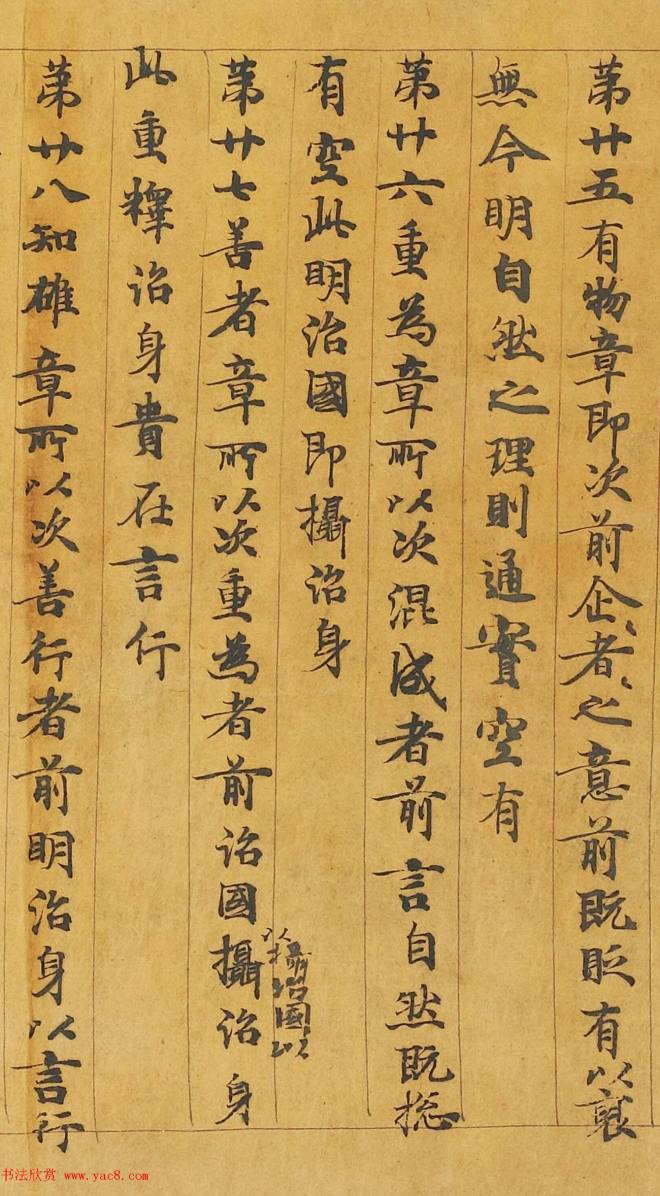 第廿五有物章即次前企〻者〻之意前既貶有以襃
無今明自然之理則通實空有
第廿六重為章所以次混成者前言自然既揔
有空此明治國即攝治身
第廿七善者章所以次重為者前治國攝治身
以攝治國以
此重釋治身貴在言行
第廿八知雄章所以次善行者前明治身以言行
书法欣赏 www.yac8.com